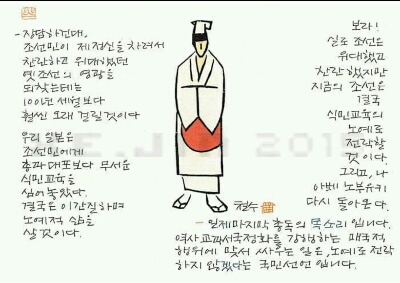 - 장담하건대,
조선민이 제정신을 차려서
찬란하고 위대했던
옛조선의 영광을
되찾는데는
100년 세월보다
훨씬 오래 걸릴것이다
우리 일본은
조선민에게
총과 대포보다 무서운
식민교육을
심어놓았다.
결국은 이간질하며
노예적 삶을
살 것이다.
보라!
실로 조선은
위대했고
찬란했지만
지금의 조선은
결국
식민교육의
노예로
전락할
것이다.
그리고, 나
아베 노부유키
다시 돌아온다.
철수
- 일제마지막 총독의 목소리입니다.
역사교과서국정화를 강행하는 매국적
행위에 맞서 싸우는 일은, 노예로 전락
하지 않겠다는 국민선언입니다.